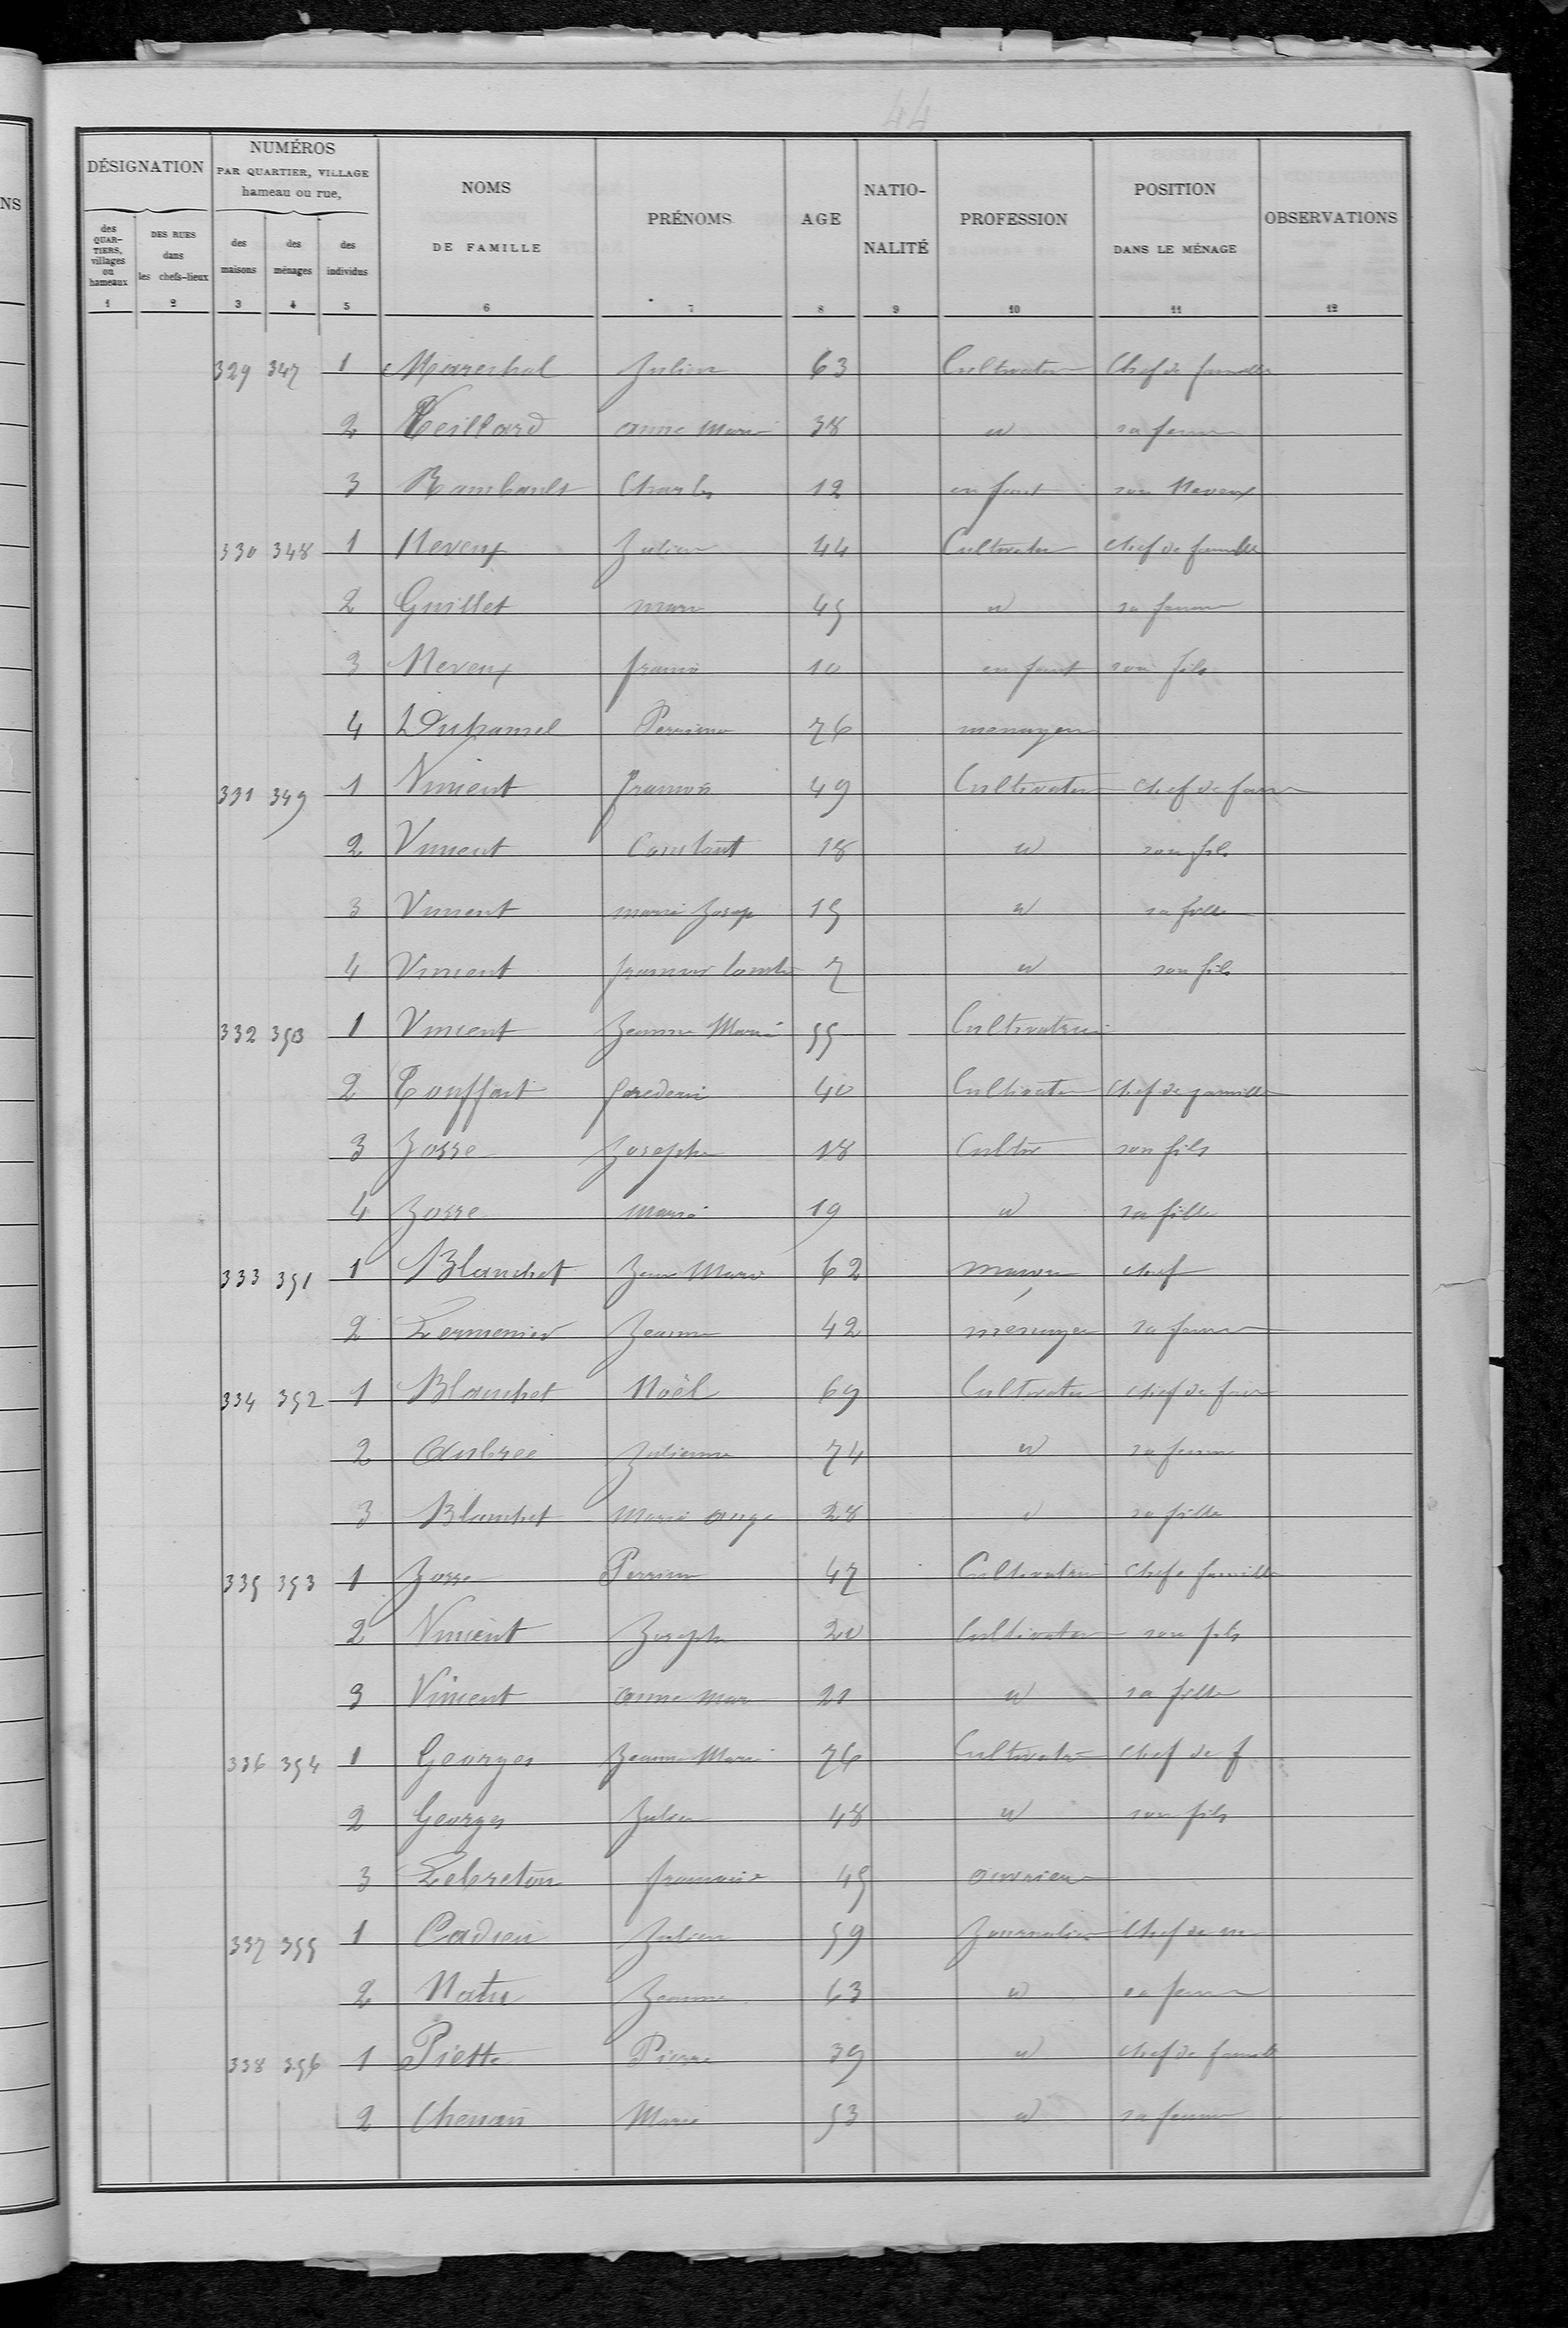 44
DÉSIGNATION
NUMÉROS
PAR QUARTIER, VILLAGE
hameau ou rue,
NOMS
DE FAMILLE
PRÉNOMS
AGE
NATIO-
NALITÉ
PROFESSION
POSITION
DANS LE MÉNAGE
OBSERVATIONS
des QUAR-TIERS, villages ou hameaux
DES RUES dans les chefs-lieux
des maisons
des ménages
des individus
1 2 3 4 5 6 7 8 9 10 11 12
329 347 1 Mareschal Julien 63 Cultivateur Chef de famille
2 Teillard anne Marie 38 id sa femme
3 Rambault Charles 12 enfant son Neveux
330 348 1 Neveux Julien 44 Cultivateur chef de famille
2 Guillet marie 45 id sa femme
3 Neveux franci 10 enfant son fils
4 Duhamel Perrine 76 menagere
331 349 1 Vincent francois 49 Cultivateur chef de fam
2 Vincent Constant 18 id son fils
3 Vincent marie Josep 15 id sa fille
4 Vincent francois 7 id son fils
332 350 1 Vincent Jeanne Marie 55 Cultivatrice
2 Touffart 40 Cultivateur chef de famille
3 Josse Joseph 18 Cultiv son fils
4 Josse marie 19 id sa fille
333 351 1 Blanchet Jean Marie 62 maçon chef
2 Lermenier Jeanne 42 ménagere sa femme
334 352 1 Blanchet Noël 69 Cultivateur chef de fam
2 Aubrée Julienne 74 id sa femme
3 Blanchet Marie ange 28 id sa fille
335 353 1 Josse Perrine 47 Cultivatrice chef famille
2 Vincent Joseph 20 Cultivateur son fils
3 Vincent anne mar 21 id sa fille
336 354 1 Georges Jeanne Marie 76 Cultivatr chef de f
2 Georges Julien 48 id son fils
3 Lebreton francoise 45 ouvriere
337 355 1 Cadieu Julien 59 Journalier Chef de m
2 Natu Jeanne 63 id sa femme
338 356 1 Piette Pierre 39 id chef de famille
2 Marie 53 id sa femme